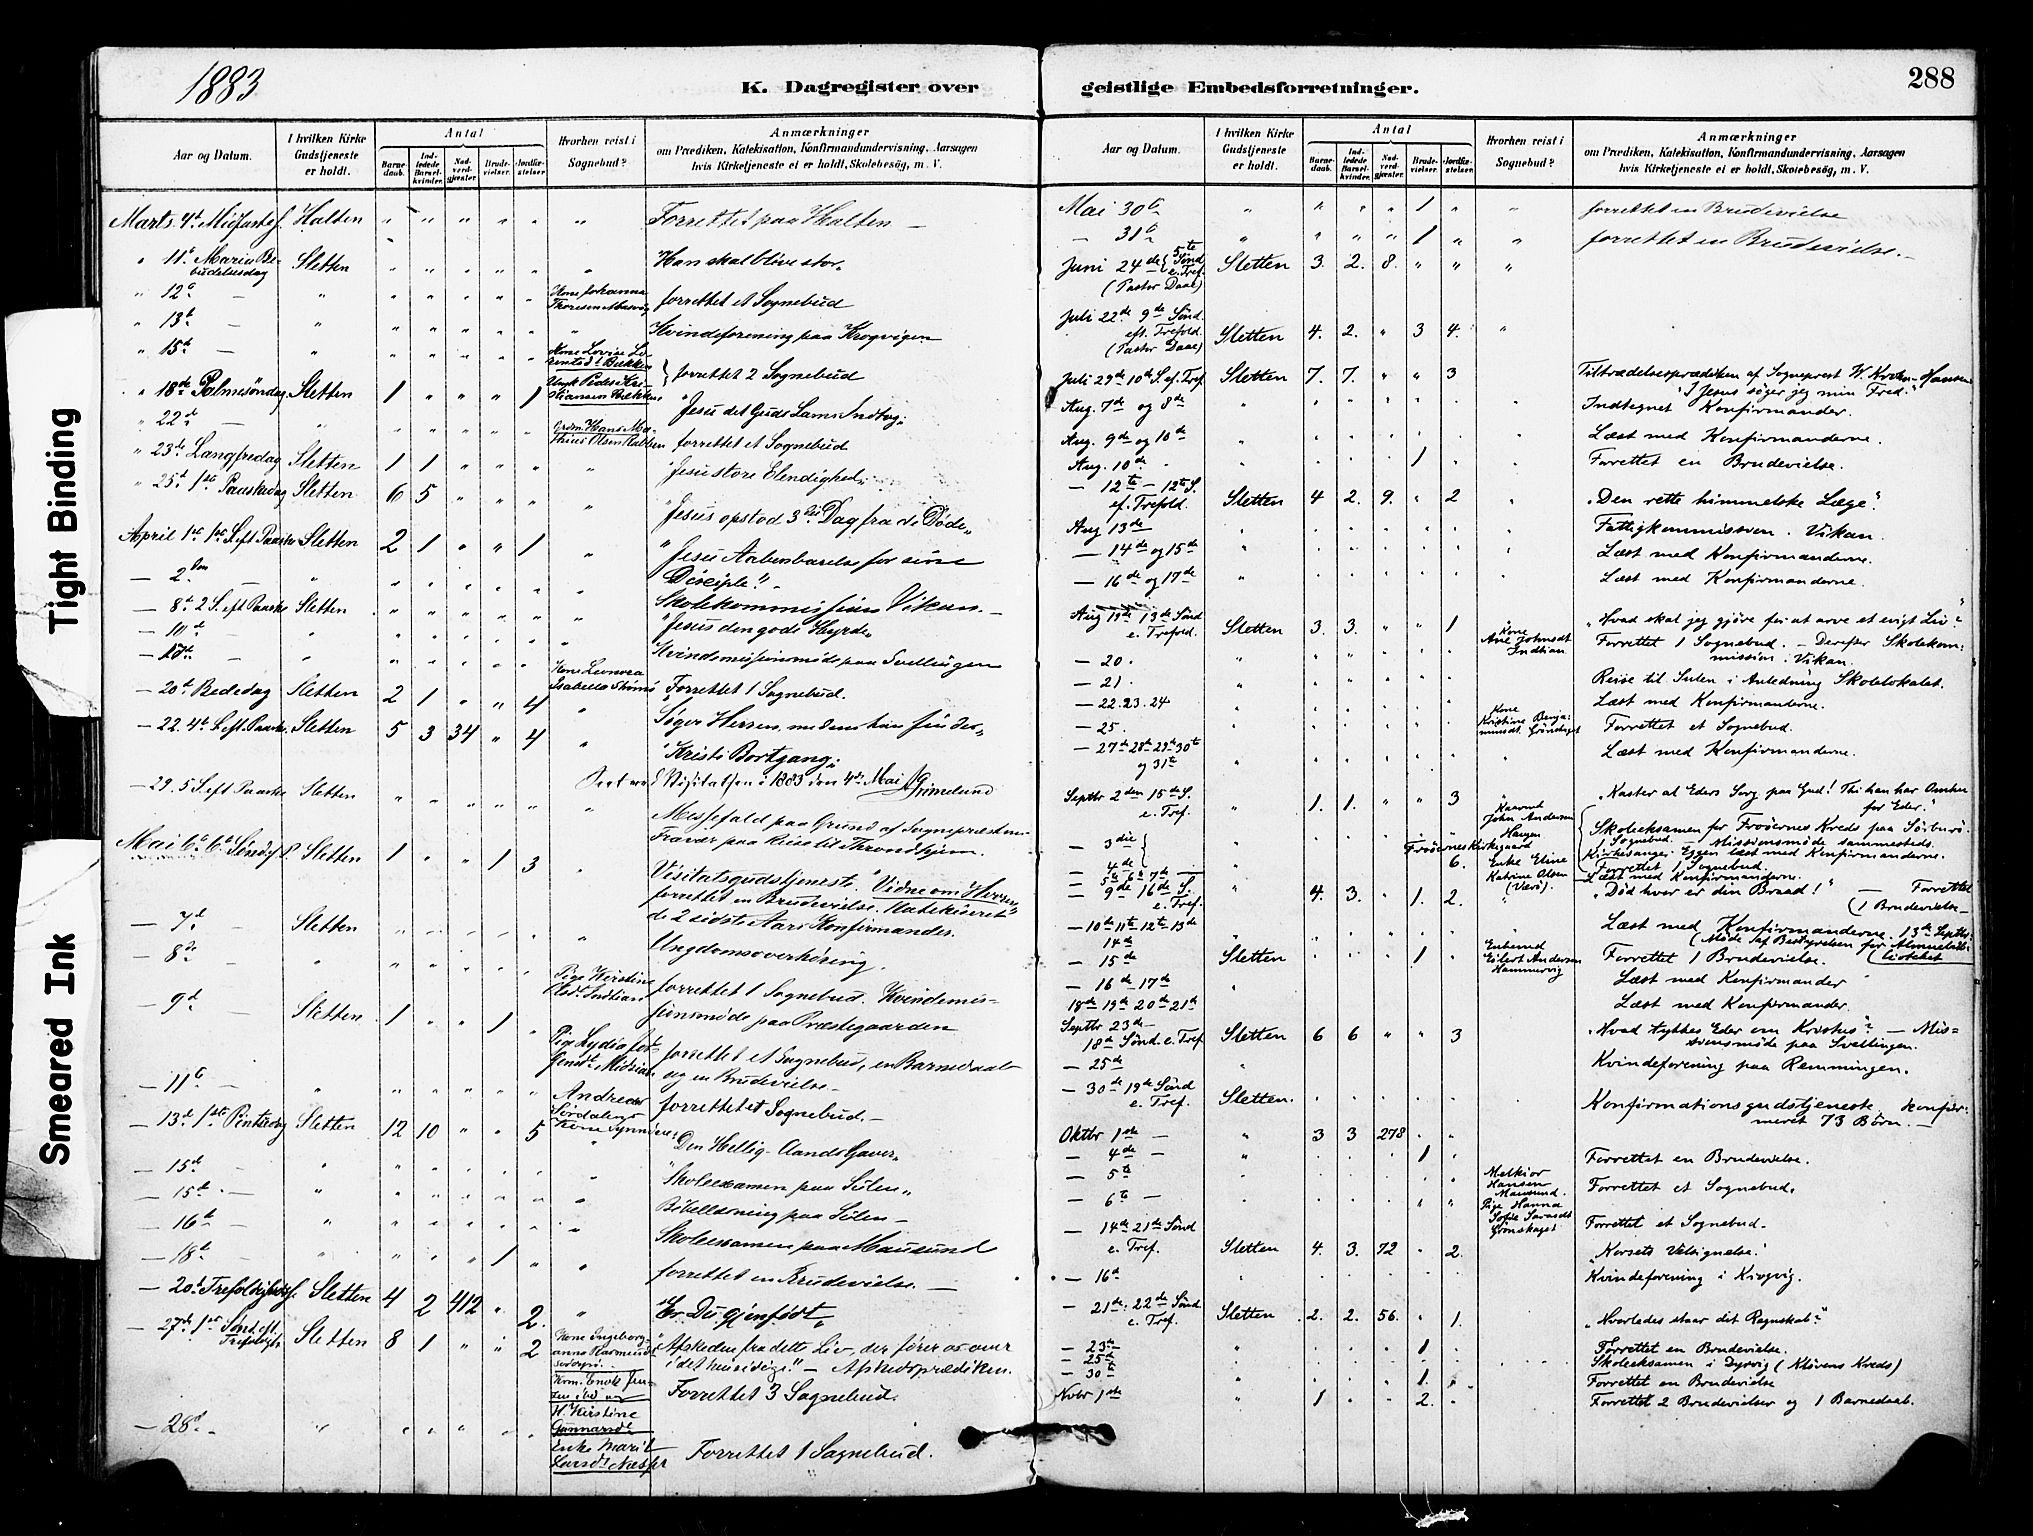 1883
K. Dagregister over
geistlige Embedsforretninger.
288
Tight Binding
Smeared Ink
Aar og Datum.
I hvilken Kirke Gudstjeneste er holdt.
Antal
Barnedaab.
Indledede Barselkvinder.
Nadverdgjæster.
Brudevielser.
Jordfæstelser.
Hvorhen reist i Sognebud?
Anmærkninger
om Prædiken, Katekisation, Konfirmandundervisning, Aarsagen
hvis Kirketjeneste ei er holdt, Skolebesøg, m. V.
Marts 4d Midfastes. Halten " " " " " " Forrettet paa Halten —
" 11te Mariæ Bebudelsesdag Sletten " " " " " " Han skal blive stor"
" 12te — " " " " " " Kone Johanna Thoresen forrettet et Sognebud
" 13d — " " " " " " " Kvindeforening paa Krogvigen
" 15d — " " " " " " forrettet 2 Sognebud
" 18de Palmesøndag Sletten 1 " " " 1 Jesu det Guds Lams Indtog"
" 22d — " " " " " " forrettet et Sognebud
" 23de Langfredag Sletten 1 1 " " " " Jesu store Elendighed"
" 25d 1ste Paaskedag Sletten 6 5 " " " " Jesus opstod 3die Dag fra de Døde"
April 1ste 1ste S. eft Paaske Sletten 2 1 " " 1 " Jesu Aabenbarelse for sine Disciple"
— 2den — " " " " " " " Skolekommission Vikan. —
— 8d 2 S. eft Paaske Sletten " " " " " " "Jesus den gode Hyrde"
— 10d — " " " " " " " Kvindemissionsmøde paa Svellingen
— 20d Bededag Sletten 2 1 " " 4 Forrettet 1 Sognebud. Søger Herren medens han findes"
— 22. 4d S. eft. Paaske. Sletten 5 3 34 " 4 " "Kristi Bortgang"
Seet ved Visitatsen i 1883 den 4de Mai Grimelund
— 29. 5 S. eft Paaske Sletten " " " " " " Messefald paa Grund af Sognepræstens
Fravær paa Reise til Throndhjem.
Mai 6te 6te Sønd. e. P. Sletten 1 " " 1 3 " Visitatsgudstjeneste. "Vidne om Herren"
forrettet en Brudevielse. Katekiseret
de 2 sidste Aars Konfirmander.
— 7d Sletten " " " " " " Ungdomsoverhøring.
— 8de " " " " " " Pige Kirstine forrettet 1 Sognebud. Kvindemissionsmøde paa Præstegaarden
— 9d — Sletten 1 " " 1 " Pige Lydia forrettet et Sognebud, en Barnedaab
og en Brudevielse —
— 11te — " " " " " " Andreas forrettet et Sognebud. —
— 13d 1ste Pintsedag Sletten 12 10 " " 5 " Den Hellig-Aands Gaver"
— 15d " " " " " " " Skoleexamen paa Sulen"
— 15d — " " " " " " " Bibellæsning paa Sulen —
— 16d — " " " " " " " Skoleexamen paa Mausund
— 18d — " " " " 1 " " forrettet en Brudevielse. —
— 20d Sletten 4 2 412 " 2. " "Er Du gjenfødt"
— 27de 1ste Sønd. eft. Sletten 8 1 " " 2 Kone Ingeborganna Rasmusd. "Afskeden fra dette Liv, der fører os over
i det hinsidige" — Afskedsprædiken.
Forrettet 3 Sognebud.
— 28d — " " " " " " Enke Marit Larsdt. Forrettet 1 Sognebud.
Aar og Datum.
I hvilken Kirke Gudstjeneste er holdt.
Antal
Barnedaab.
Indledede Barselkvinder.
Nadverdgjæster.
Brudevielser.
Jordfæstelser.
Hvorhen reist i Sognebud?
Anmærkninger
om Prædiken, Katekisation, Konfirmandundervisning, Aarsagen
hvis Kirketjeneste ei er holdt, Skolebesøg, m. V.
Mai 30te " " " " 1 " " forrettet en Brudevielse
— 31te " " " " 1 " " forrettet en Brudevielse. —
Juni 24de 5te Sønd e. Tref. (Pastor Daae) Sletten 3. 2. 8. " " "
Juli 22de 9de Sønd eft. Trefold. (Pastor Daae) Sletten 4. 2. " 3 4. "
Juli 29de 10de S. ef. Tref. Sletten 7. 7. " " 3 Tiltrædelsesprædiken af Sogneprest W. Krohn-Hansen
"I Jesus søger jeg min Fred."
Aug. 7de og 8de " Indtegnet Konfirmander.
Aug. 9de og 10de " Læst med Konfirmanderne.
Aug. 10de " 1 Forrettet en Brudevielse.
— 12te — 12te S. ef. Trefold. Sletten 4 2. 9. " 2 "Den rette himmelske Læge".
Aug 13de Fattigkommission. Vikan.
— 14de og 15de Læst med Konfirmanderne.
— 16de og 17de Læst med Konfirmanderne.
Aug 19de 13de Sønd e. Trefold. Sletten 3. 3. " " 1 "Hvad skal jeg gjøre for at arve et evigt Liv?"
— 20. Kone Ane Johnsdt Indtian Forrettet 1 Sognebud. — Derefter Skolekommission: Vikan.
— 21. Reise til Sulen i Anledning Skolelokalet.
— 22. 23. 24 Læst med Konfirmanderne.
— 25. Kone Kristine Forrettet et Sognebud.
— 27de 28de 29de 30te og 31te Læst med Konfirmanderne.
Septbr 2den 15de S. e. Tref. " 1. 1. " " 3 "Kaster al Eders Sorg paa Gud! Thi han har Omhu for Eder."
— 3die John Andersen Skoleeksamen for Froöernes Kreds paa Sörburö.
1 Sognebud. — Missionsmøde sammesteds.
Froöernes Kirkegaard
Kirkesanger Eggen læst med Konfirmanderne.
— 4de 6. Enke Eline Katrine Olsen (Værö). Forrettet 1 Sognebud.
— 5te 6te 7de — Læst med Konfirmanderne.
— 9de 16de S. e. Tref. " 4. 3. " 1. 2. " "Död hvor er din Braad!" — Forrettet 1 Brudevielse —
— 10de 11te 12te 13de 14de Læst med Konfirmanderne. 13de Septbr.
(Møde af Bestyrelsen for Almuebibliotheket
— 15de Sletten 1 Eilert Andersen Hammervig Forrettet 1 Brudevielse.
— 16de — 17de Læst med Konfirmander
18de 19de 20de 21de Læst med Konfirmander.
Septbr 23de — 18de Sønd. e. Tref Sletten 6 6 " " 3 "Hvad tykkes Eder om Kristus"? — Missionsmøde paa Svellingen.
— 25de Kvindeforening paa Remmingen.
— 30de 19de Sönd e. Tref. Sletten. Konfirmationsgudstjeneste, konfirmeret 73 Börn. —
Oktbr 1ste — " 3 3 278 " "
— 4de — " 1 Forrettet en Brudevielse.
— 5te Melkior Hansen Mausund. Forrettet et Sognebud.
— 6te — Pige Hanna Forrettet et Sognebud.
— 14de 21de Sönd e. Tref. Sletten 4. 3. 72 " 2. "Korsets Velsignelse."
— 16de Kvindeforening i Krogvig.
— 21de: 22de Sönd e. Tref. Sletten 2. 2. 56. " 1. "Hvorledes staar dit Regnskab?"
— 23de 1 Forrettet en Brudevielse.
— 25de Skoleeksamen i Dyrvig (Klivens Kreds)
— 30te 1. Forrettet en Brudevielse
Novbr 1ste " 1 " " 2. " Forrettet 2 Brudevielser og 1 Barnedaab.